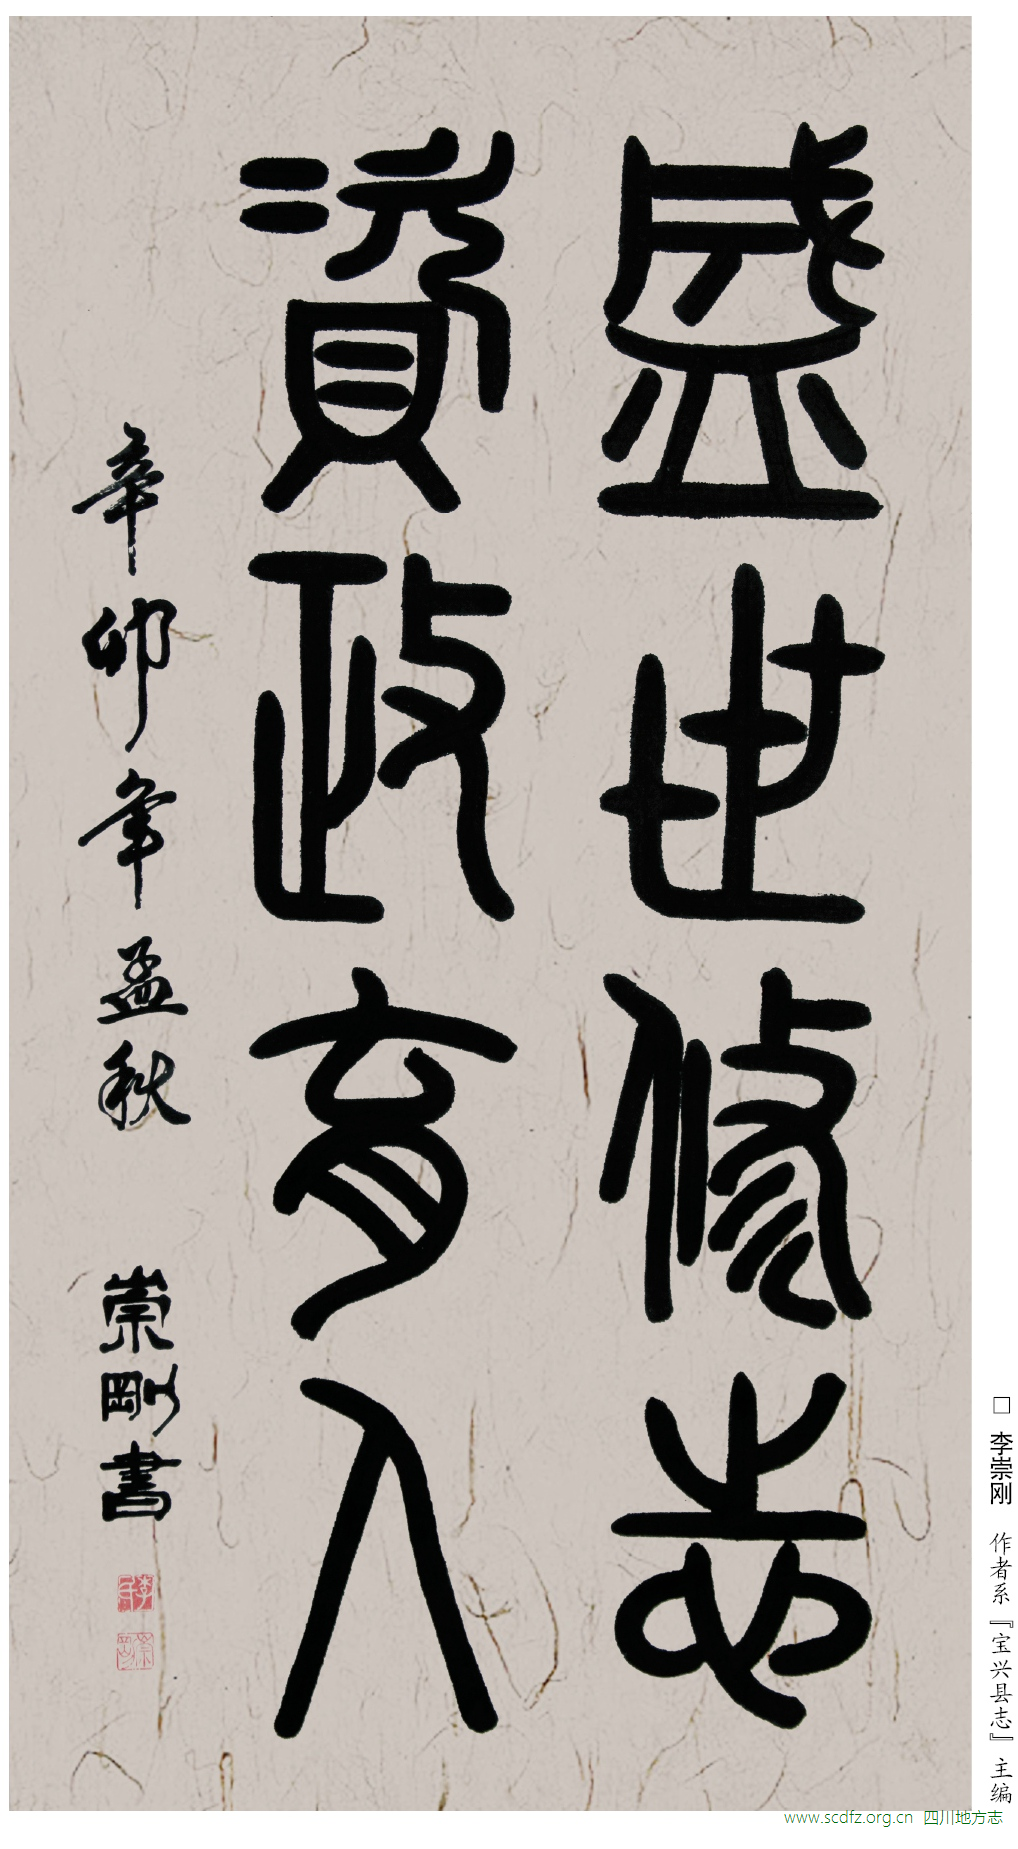 盛世修志
資政育人
辛卯年孟秋
崇剛書
□ 李崇刚 作者系『宝兴县志』主编
www.scdfz.org.cn 四川地方志